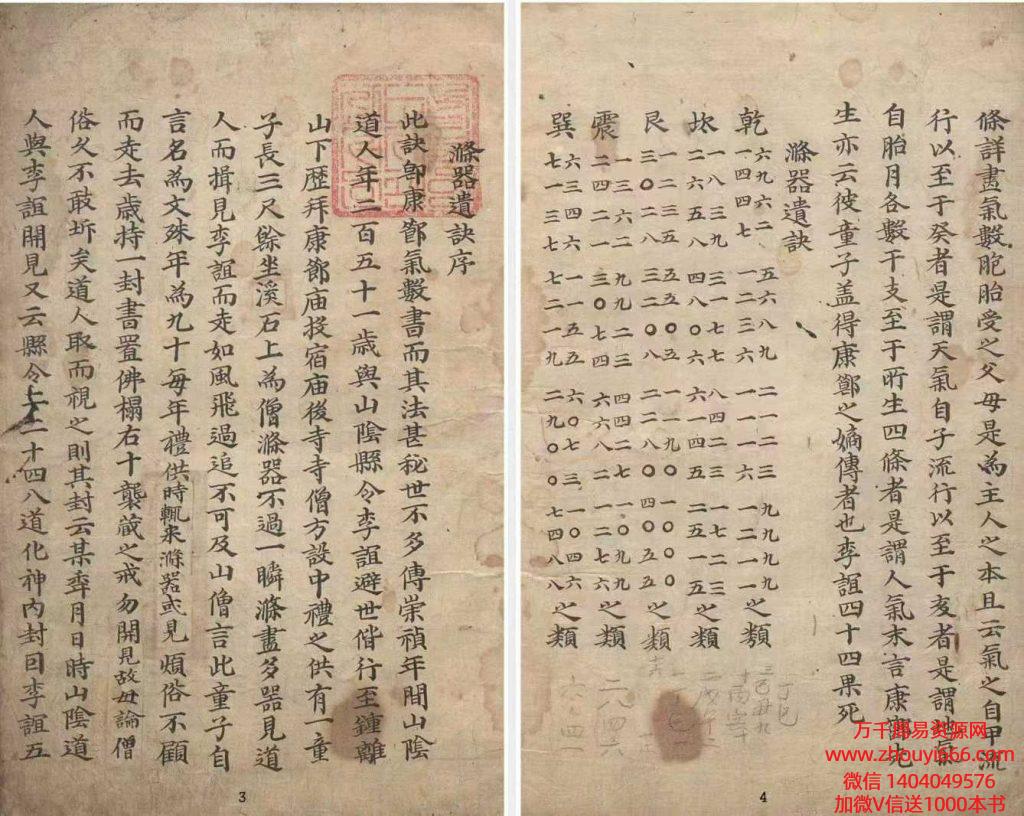 滌器遺訣序
此訣即康節氣數書而其法甚秘世不多傳崇禎年間山陰
道人年二百五十一歲與山陰縣令李誼避世偕行至鍾離
山下歷拜康節庙投宿庙後寺寺僧方設中禮之供有一童
子長三尺餘坐溪石上為僧滌器不過一瞬滌盡多器見道
人而揖見李誼而走如風飛過追不可及山僧言此童子自
言名為文殊年為九十每年禮供時輒来滌器或見煩俗不顧
而走去歲持一封書置佛榻右十襲藏之戒勿開見故毋論僧
俗久不敢坼矣道人取而視之則其封云某年月日時山陰道
人與李誼開見又云縣令上二十四八道化神內封曰李誼五
3
條詳盡氣數胞胎受之父母是為主人之本且云氣之自甲流
行以至于癸者是謂天氣自子流行以至于亥者是謂地氣
自胎月各數干支至于所生四條者是謂人氣末言康節先
生亦云彼童子盖得康節之嫡傳者也李誼四十四果死
滌器遺訣
乾 六九六二 五六八九 二一二三 九九九九
一四四七 一二三六 一一一六 一二一一 之類
坎 一八三九 三一七七 八四二三 一七二三
二六五八 四八〇六 六一四五 二五一五 之類
艮 一二三五 五五〇〇 一一九〇 一〇〇〇
三〇二八 三二〇八 二二八〇 四〇五五 之類
震 一三六二 九九二三 四四二七 一〇九九
二四二一 三〇七四 六六八二 一二七六 之類
巽 六三四六 一一五五 六〇七三 一〇四六
七一三七 七二一九 二九〇〇 七四八八 之類
4
万千周易资源网
www.zhouyi666.com
微信 1404049576
加微V信送1000本书